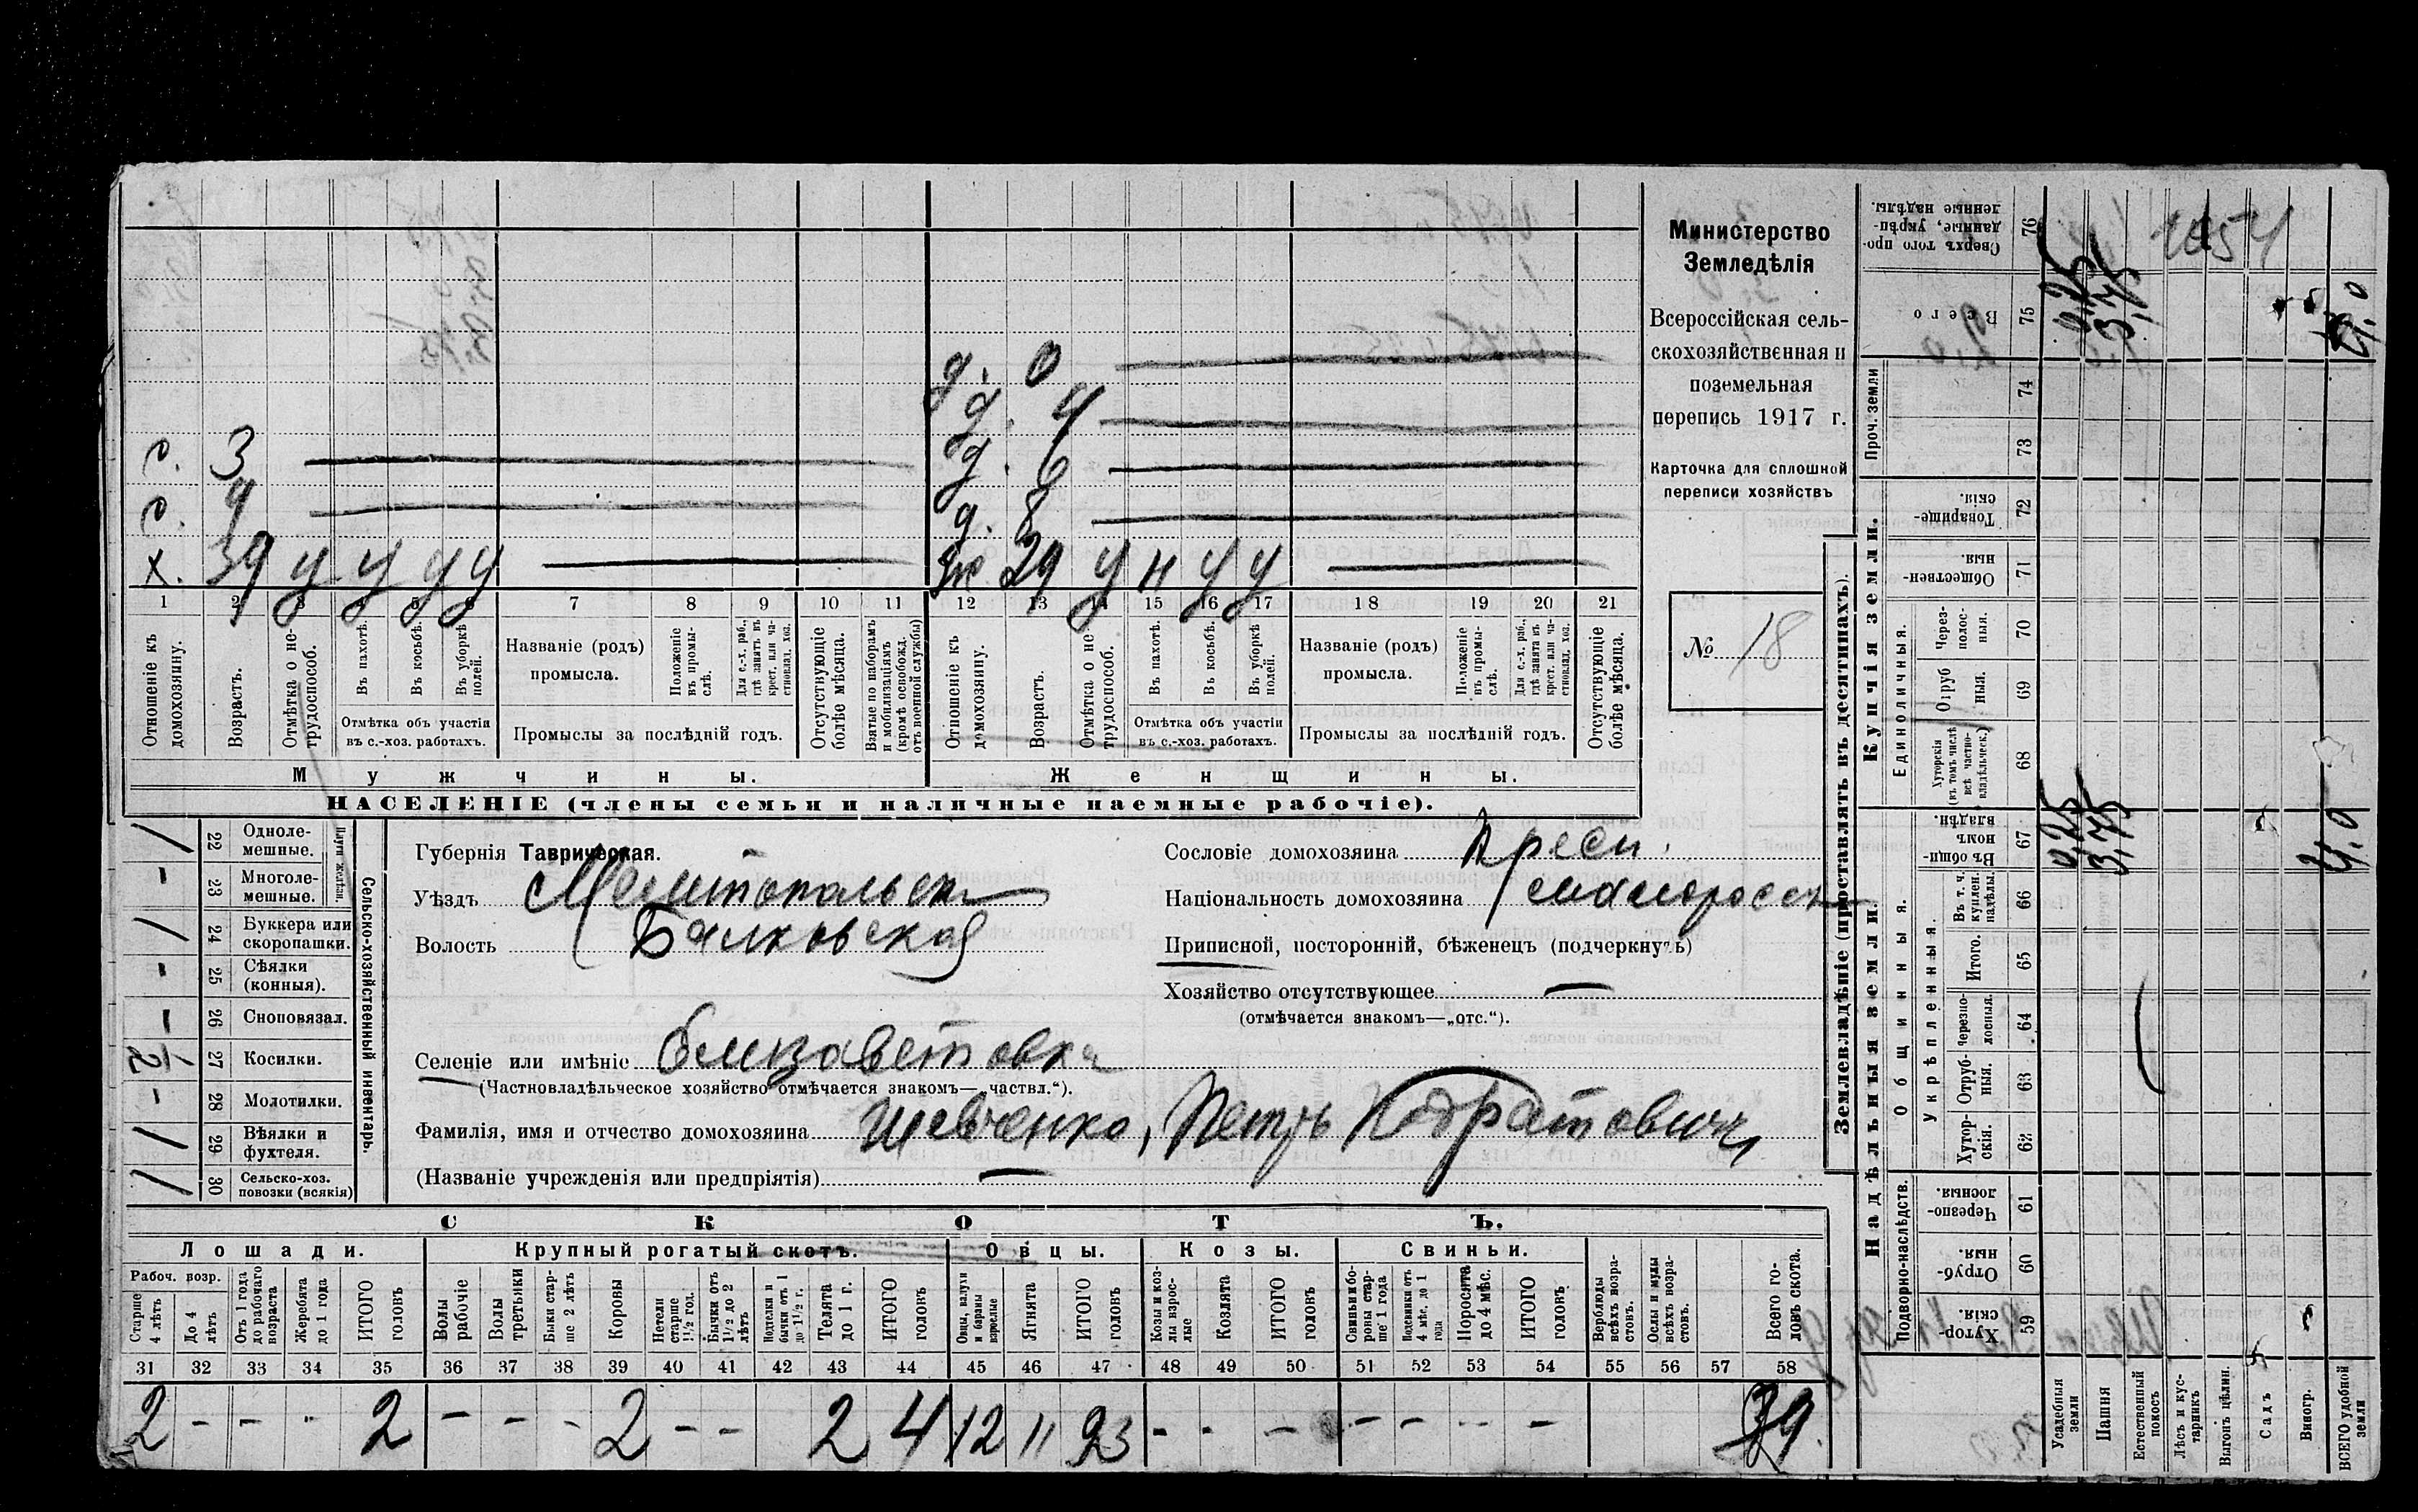 Министерство
Земледѣлія
Всероссійская сель-
скохозяйственная и
поземельная
перепись 1917 г.
Карточка для сплошной
переписи хозяйствъ
№ 18
д. 0
д. 4
с. 3
д. 6
с. 9
д. 8
х. 39 у у у у
ж 29 у н у у
1 2 3 4 5 6 7 8 9 10 11 12 13 14 15 16 17 18 19 20 21
Отношеніе къ домохозяину.
Возрастъ.
Отмѣтка о не-трудоспособ.
Въ пахотѣ.
Въ косьбѣ.
Въ уборкѣ полей.
Отмѣтка объ участіи
въ с.-хоз. работахъ.
Названіе (родъ)
промысла.
Положеніе въ промы-слѣ.
Для с.-х. раб., гдѣ занятъ въ крест. или ча-стновлад. хоз.
Промыслы за послѣдній годъ.
Отсутствующіе болѣе мѣсяца.
Взятые по наборамъ и мобилизаціямъ (кромѣ освобожд. отъ военной службы)
Отношеніе къ домохозяину.
Возрастъ.
Отмѣтка о не-трудоспособ.
Въ пахотѣ.
Въ косьбѣ.
Въ уборкѣ полей.
Отмѣтка объ участіи
въ с.-хоз. работахъ.
Названіе (родъ)
промысла.
Положеніе въ промы-слѣ.
Для с.-х. раб., гдѣ занята въ крест. или ча-стновлад. хоз.
Промыслы за послѣдній годъ.
Отсутствующіе болѣе мѣсяца.
Мужчины.
Женщины.
НАСЕЛЕНІЕ (члены семьи и наличные наемные рабочіе).
Сельско-хозяйственный инвентарь.
Плуги желѣзн.
/ 22 Одноле-мешные.
- 23 Многоле-мешные.
/ 24 Буккера или скоропашки.
- 25 Сѣялки (конныя).
- 26 Сноповязал.
1/2 27 Косилки.
- 28 Молотилки.
/ 29 Вѣялки и фухтеля.
/ 30 Сельско-хоз. повозки (всякія)
Губернія Таврическая.
Уѣздъ Мелитопольск
Волость Балковская
Селеніе или имѣніе Елизаветовка
(Частновладѣльческое хозяйство отмѣчается знакомъ—„частвл.“).
Фамилія, имя и отчество домохозяина Шевченко, Петръ Кодратович
(Названіе учрежденія или предпріятія)
Сословіе домохозяина Крест.
Національность домохозяина малоросс
Приписной, посторонній, бѣженецъ (подчеркнуть)
Хозяйство отсутствующее —
(отмѣчается знакомъ—„отс.“).
СКОТЪ.
Лошади.
Крупный рогатый скотъ.
Овцы.
Козы.
Свиньи.
Рабоч. возр.
Старше 4 лѣтъ
До 4 лѣтъ
Отъ 1 года до рабочаго возраста
Жеребята до 1 года
ИТОГО головъ
Волы рабочіе
Волы третьяки
Быки стар-ше 2 лѣтъ
Коровы
Нетели старше 1½ год.
Бычки отъ 1½ до 2 лѣтъ
Подтелки и бычки отъ 1 до 1½ г.
Телята до 1 г.
ИТОГО головъ
Овцы, валухи и бараны взрослые
Ягнята
ИТОГО головъ
Козы и коз-лы взрос-лые
Козлята
ИТОГО головъ
Свиньи и бо-ровы стар-ше 1 года
Подсвинки отъ 4 мѣс. до 1 года
Поросята до 4 мѣс.
ИТОГО головъ
Верблюды всѣхъ возра-стовъ.
Ослы и мулы всѣхъ возра-стовъ.
Всего го-ловъ скота.
31 32 33 34 35 36 37 38 39 40 41 42 43 44 45 46 47 48 49 50 51 52 53 54 55 56 57 58
2 - - - 2 - - - 2 - - 2 4 12 11 23 - - - - - - -
Землевладѣніе (проставлять въ десятинахъ).
Надѣльныя земли.
Купчія земли.
Проч. земли
Сверхъ того про-данные, укрѣп-ленные надѣлы.
76
Всего
75
74
73
Товарище-скія.
72
Обществен-ныя
71
Единоличныя.
Через-полос-ныя.
70
Отруб ныя.
69
Хуторскія (въ томъ числѣ всѣ частно-владѣльческ.)
68
Въ общи-номъ владѣн.
67
Общинныя.
Укрѣпленныя.
Въ т. ч. куплен. надѣлы.
66
Итого.
65
Черезпо-лосныя.
64
Отруб-ныя.
63
Хутор-скія.
62
Подворно-наслѣдств.
Черезпо-лосныя.
61
Отруб-ныя
60
Хутор-скія.
59
Усадебныя земли
0,25 0,25
Пашня
3,75 3,75
Естественный покосъ
Лѣсъ и кус-тарникъ
Выгонъ цѣлин.
Садъ
Виногр.
ВСЕГО удобной земли
4,0